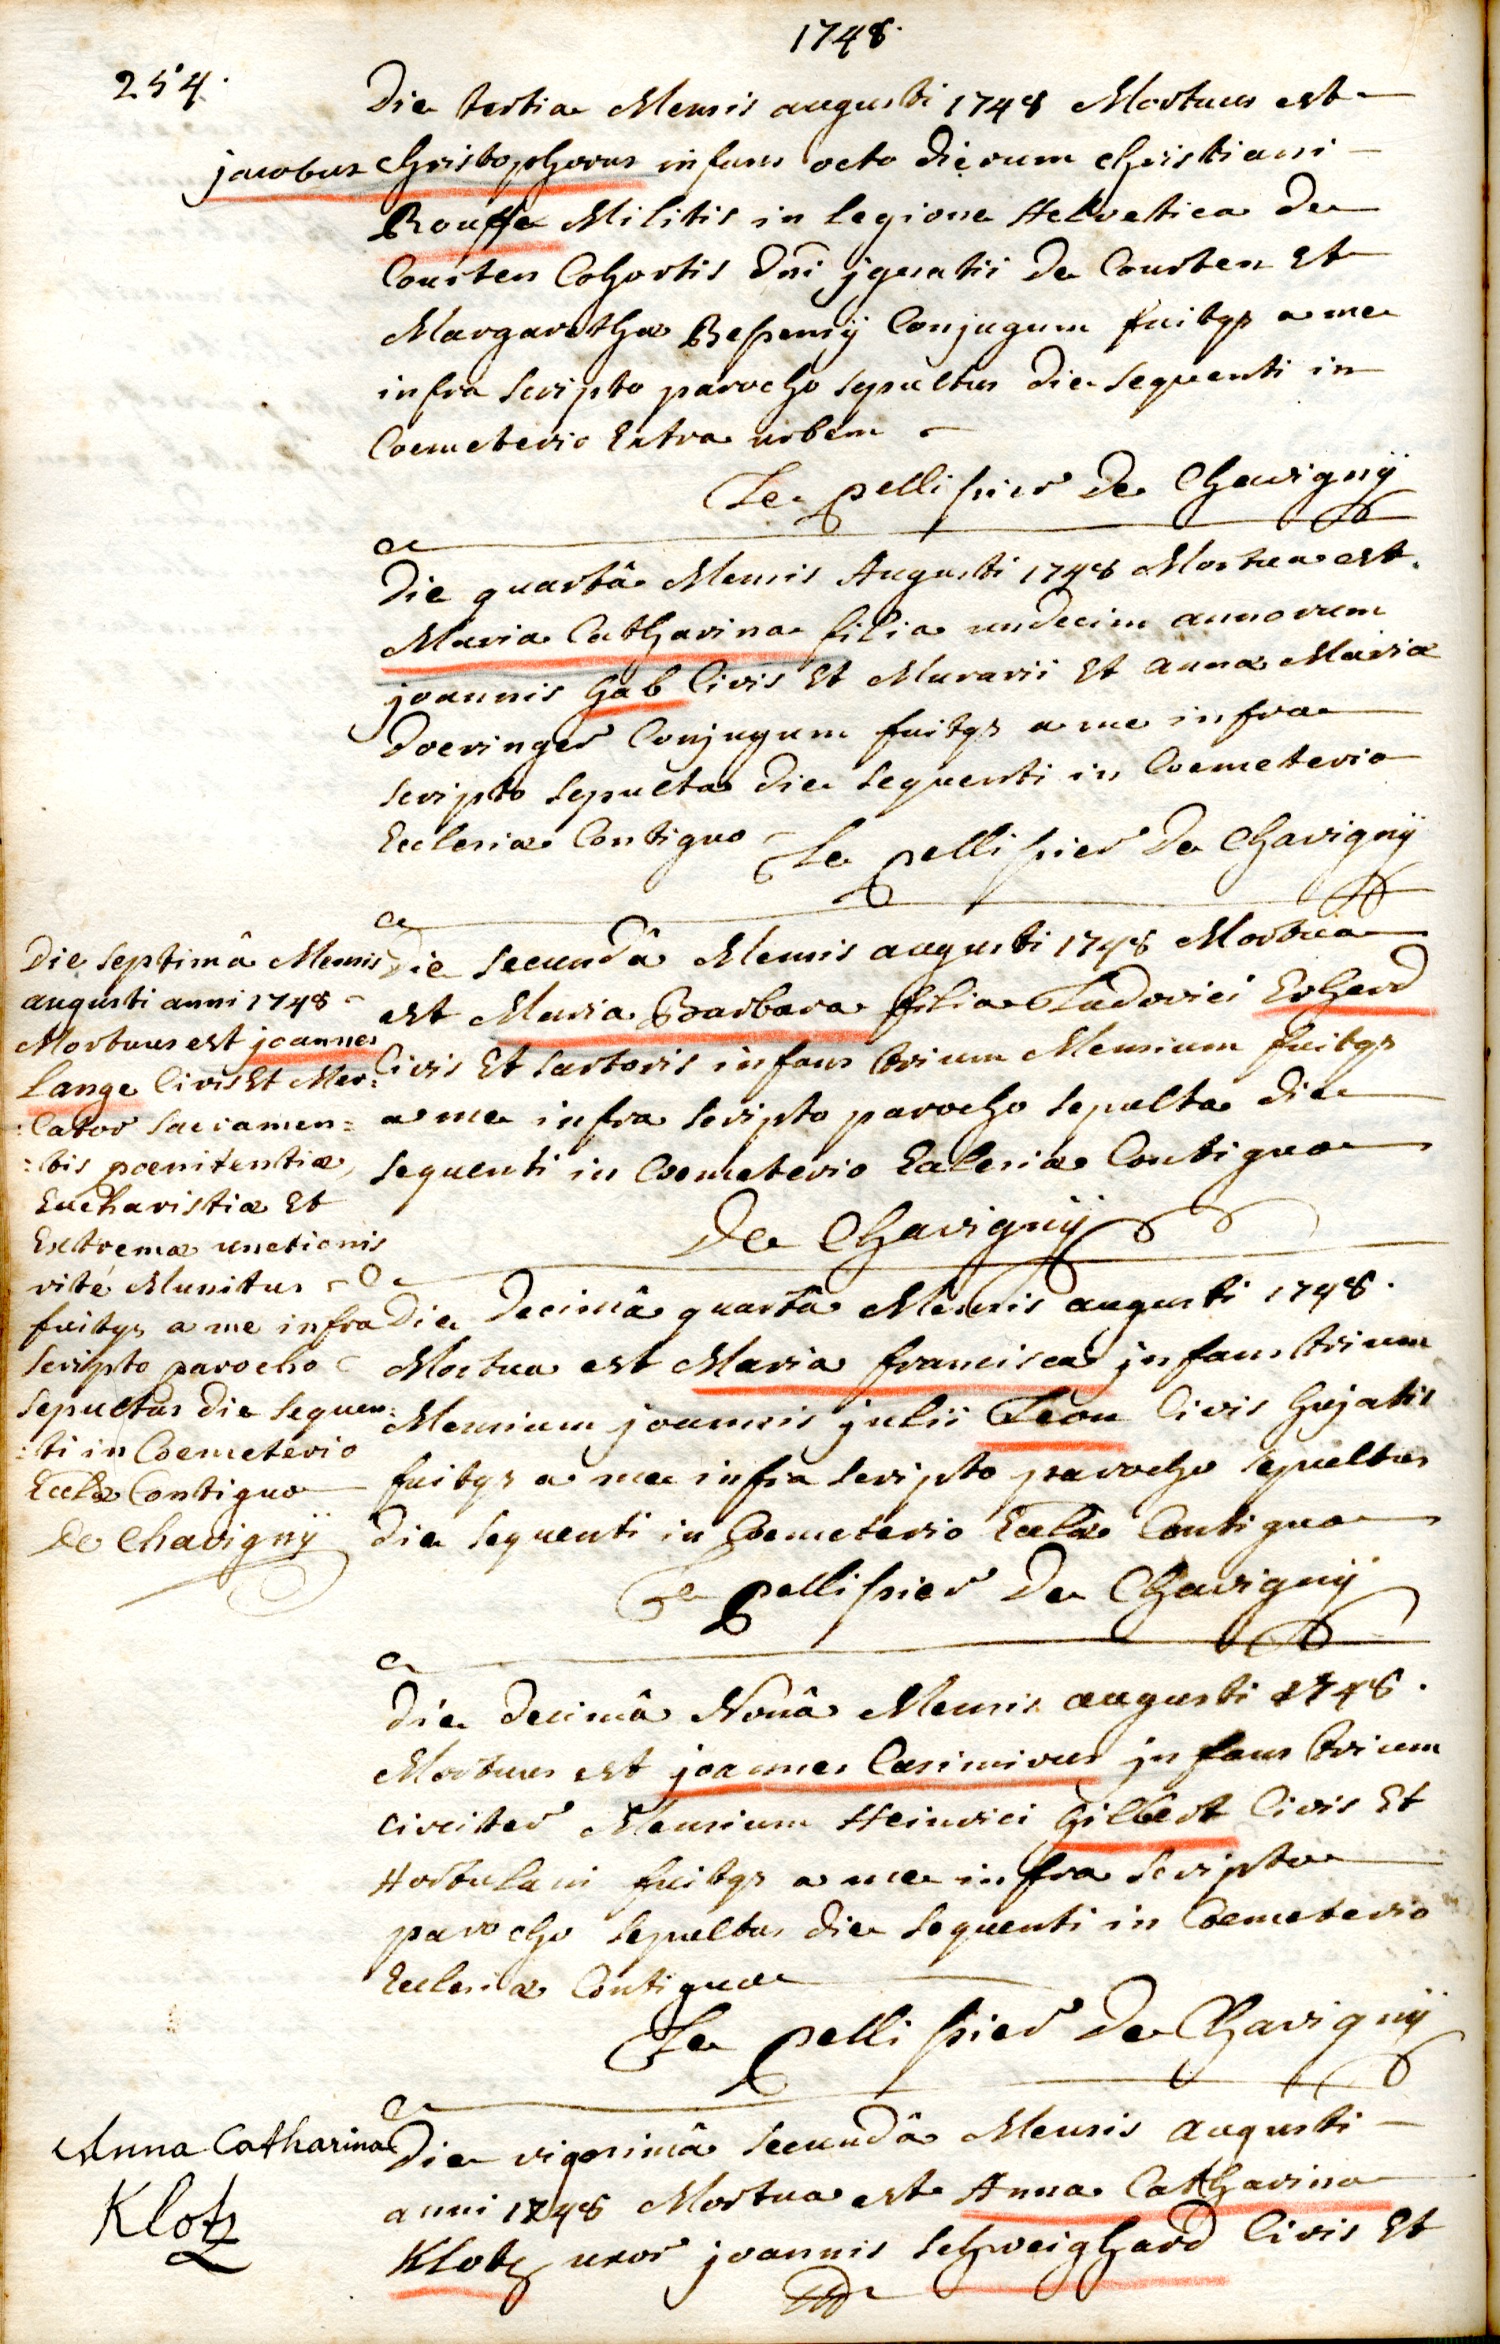 1748.
254.
Die tertia Mensis augusti 1748 Mortuus est
jacobus Christophorus infans octo dierum Christiani
Militis in legione Helvetica De
Courten Cohortis Dni jgnatii De Courten Et
Margarethæ Conjugum fuitqs a me
infra scripto parocho sepultus die sequenti in
Coemeterio Extra urbem
Le pellissier De Chavignÿ
Die quartâ Mensis Augusti 1748 Mortua est.
Maria Catharina filia undecim annorum
joannis Gab Civis Et Murarii Et annæ Mariæ
Doeringer Conjugum fuitqs a me infra
scripto sepulta die sequenti in Coemeterio
Ecclesiæ Contiguo
Le pellissier De Chavignÿ
Die secundâ Mensis augusti 1748 Mortua
est Maria Barbara filia Ludovici Erhard
Civis Et sartoris infans trium Mensium fuitqs
a me infra scripto parocho sepulta die
sequenti in Coemeterio Ecclesiæ Contiguo
De Chavignÿ
Die septimâ Mensis
augusti anni 1748
Mortuus est joannes
Lange Civis Et Mer=
:cator sacramen=
=tis poenitentiæ,
Eucharistiæ Et
Extremæ unctionis
rité Munitus
fuitqs a me infra
scripto parocho
sepultus die sequen=
=ti in Coemeterio
Ecclæ Contiguo
De Chavignÿ
Die Decimâ quartâ Mensis augusti 1748.
Mortua est Maria francisca jnfans trium
Mensium joannis julii Leon Civis hujatis
fuitqs a me infra scripto parocho sepultus
die sequenti in Coemeterio Ecclæ Contiguo
Le pellissier De Chavignÿ
Die Decimâ Nonâ Mensis augusti 1748.
Mortuus est joannes Casimirus jnfans trium
circiter Mensium Heinrici Gilbert Civis Et
Hortulani fuitqs a me infra scripto
parocho sepultus die sequenti in Coemeterio
Ecclesiæ Contiguo
Le pellissier De Chavignÿ
Anna Catharina
Klotz
Die vigesimâ secundâ Mensis augusti
anni 1748 Mortua est Anna Catharina
Klotz uxor joannis schweighard Civis Et